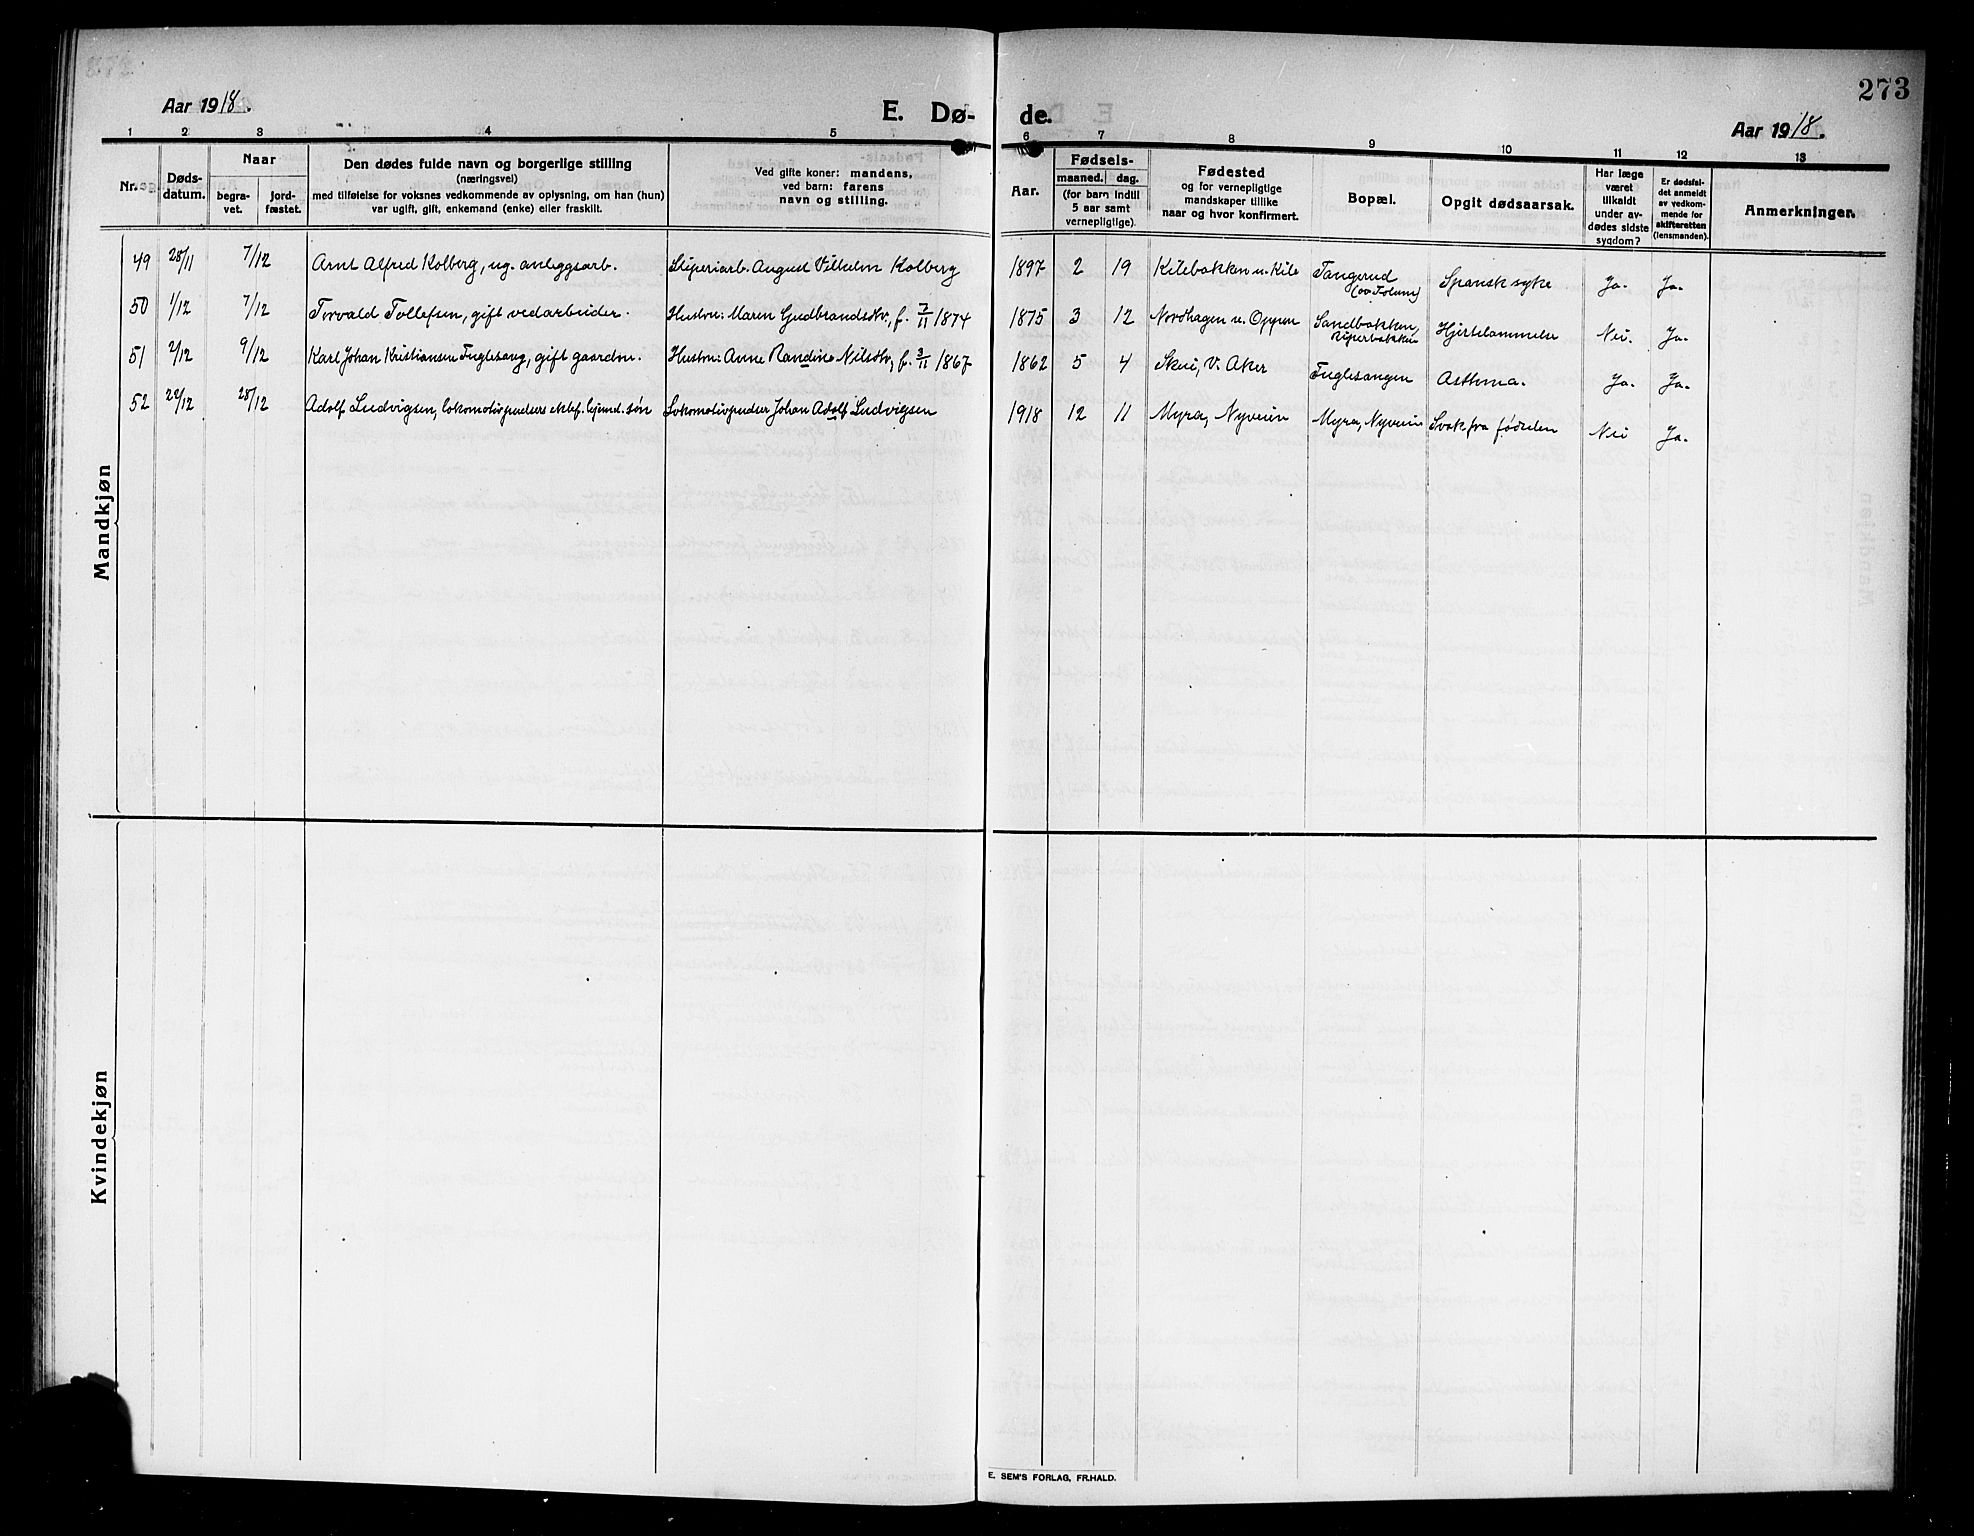 273
Aar 1918.
E. Dø-
de.
Aar 1918.
1 2 3 4 5 6 7 8 9 10 11 12 13
Nr.
Døds-
datum.
Naar
begra-
vet.
jord-
fæstet.
Den dødes fulde navn og borgerlige stilling
(næringsvei)
med tilføielse for voksnes vedkommende av oplysning, om han (hun)
var ugift, gift, enkemand (enke) eller fraskilt.
Ved gifte koner: mandens,
ved barn: farens
navn og stilling.
Aar.
Fødsels-
maaned. dag.
(for barn indtil
5 aar samt
vernepligtige).
Fødested
og for vernepligtige
mandskaper tillike
naar og hvor konfirmert.
Bopæl.
Opgit dødsaarsak.
Har læge
været
tilkaldt
under av-
dødes sidste
sygdom?
Er dødsfal-
det anmeldt
av vedkom-
mende for
skifteretten
(lensmanden).
Anmerkninger.
Mandkjøn
49 28/11 7/12 Arnt Alfred Kolberg, ug. anleggsarb. Sliperiarb. August Vilhelm Kolberg 1897 2 19 Kilebakken u. Kile Tangerud Spansk syke Ja. Ja.
50 1/12 7/12 Torvald Tollefsen, gift vedarbeider. Hustru: Maren Gudbrandsdtv., f. 7/11 1874 1875 3 12 Nordhagen u. Oppen Sandbakken, Hjertelammelse Nei. Ja.
51 2/12 9/12 Karl Johan Kristiansen Fuglesang, gift gaardbr. Hustru: Anne Randine Nilsdtv, f. 3/11 1867 1862 5 4 Skui, V. Aker Fuglesangen Asthma. Ja. Ja.
52 22/12 28/12 Adolf Ludvigsen, lokomotivpudsers ektef. hjemd. søn Lokomotivpudser Johan Adolf Ludvigsen 1918 12 11 Myra, Nyveien Myra, Nyveien Svak fra fødselen Nei Ja.
Kvindekjøn
E. SEM'S FORLAG, FR.HALD.